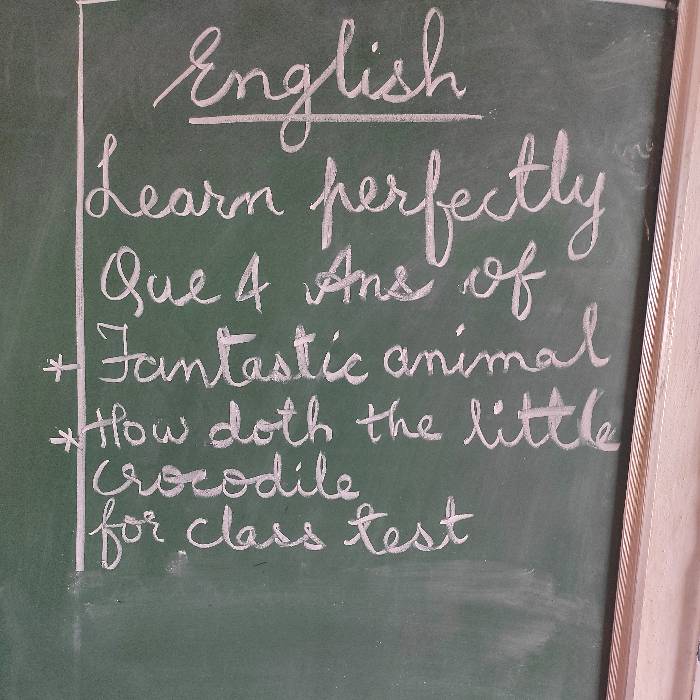 English
Learn perfectly
Que & Ans of
* Fantastic animal
* How doth the little
crocodile
for class test